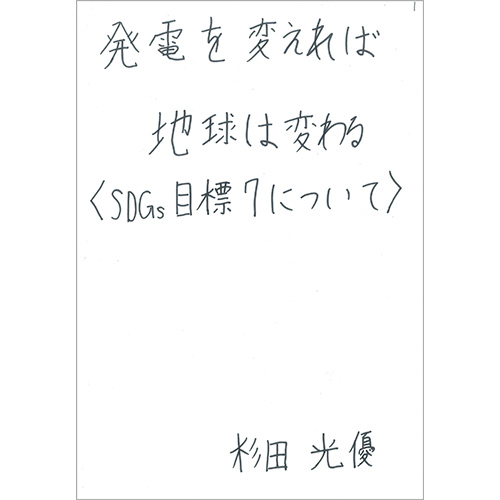 発電を変えれば
地球は変わる
〈SDGs目標7について〉
杉田 光優